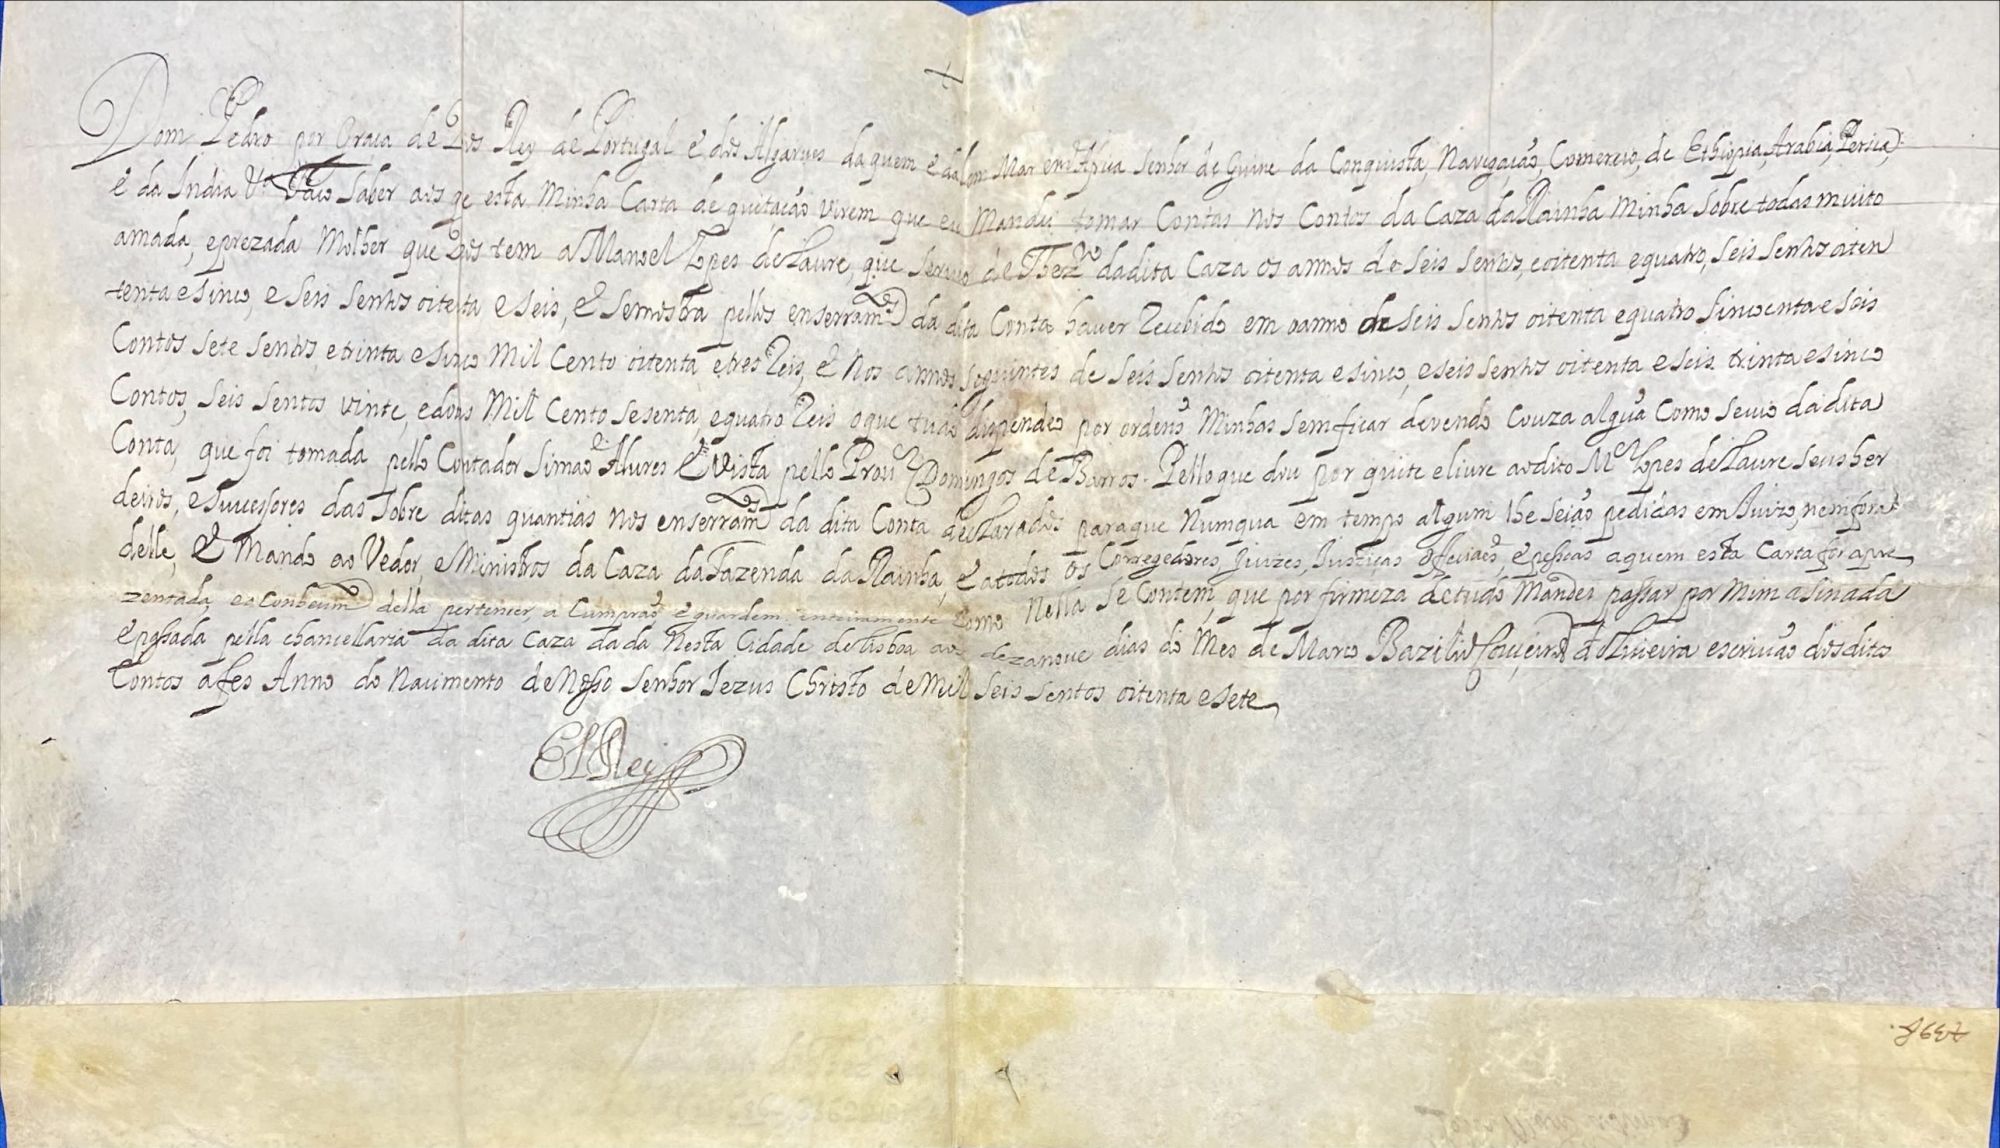 Dom Pedro por Graca de Ds Rey de Portugal e dos Algarues daquem e dalem Mar em Africa Senhor de Guine da Conquista, Navegação, Comercio, de Ethiopia, Arabia, Persia,
e da India &a faço saber aos qe esta Minha Carta de quetação virem que eu Mandei tomar Contas nos Contos da Caza da Rainha Minha Sobre todas muito
amada, eprezada Molher que Ds tem a Manoel Lopes de Laure, que seruio de Thezro dadita Caza os annos de seis sentos, eoitenta equatro, seis sentos oiten
tenta esinco, e seis sentos oitenta eseis, e semostra pellos enserramtos da dita Conta haver Recebido em oanno de seis sentos oitenta equatro sincoenta eseis
Contos sete sentos, etrinta esinco Mil Cento oitenta, etres Reis, e Nos annos seguintes de seis sentos oitenta esinco, eseis sentos oitenta eseis trinta esinco
Contos, seis sentos vinte, edous Mil Cento sesenta, equatro Reis oque tudo dispendeo por ordens Minhas semficar devendo Couza algũa Como seuio dadita
Conta, que foi tomada pello Contador Simão Alures e vista pello Prour Domingos de Barros. Pelloque dou por quite eliure aodito Mel Lopes de Laure seus her
deiros, esuccessores das Sobre ditas quantias nos enserramtos da dita Conta declarados paraque Numqua em tempo algum lhe seião pedidas em Juizo, nemfora
delle, e Mando ao Vedor, e Ministros da Caza da Fazenda da Rainha, e atodos os Corregedores, Juizes, Justiças officiaes, epessoas aquem esta Carta for apre
zentada, eoConhecimto della pertencer, a Cumprão e guardem inteiramente Como Nella se Contem, que por firmeza detudo Mandei passar por Mim asinada
epassada pella chancellaria da dita Caza dada Nesta Cidade de Lisboa aos dezanoue dias do Mes de Marco Bazilio de Oliueira escriuão dosditos
Contos afes Anno do Nacimento de Nosso Senhor Jezus Christo de Mil Seis sentos oitenta esete,
El Rey